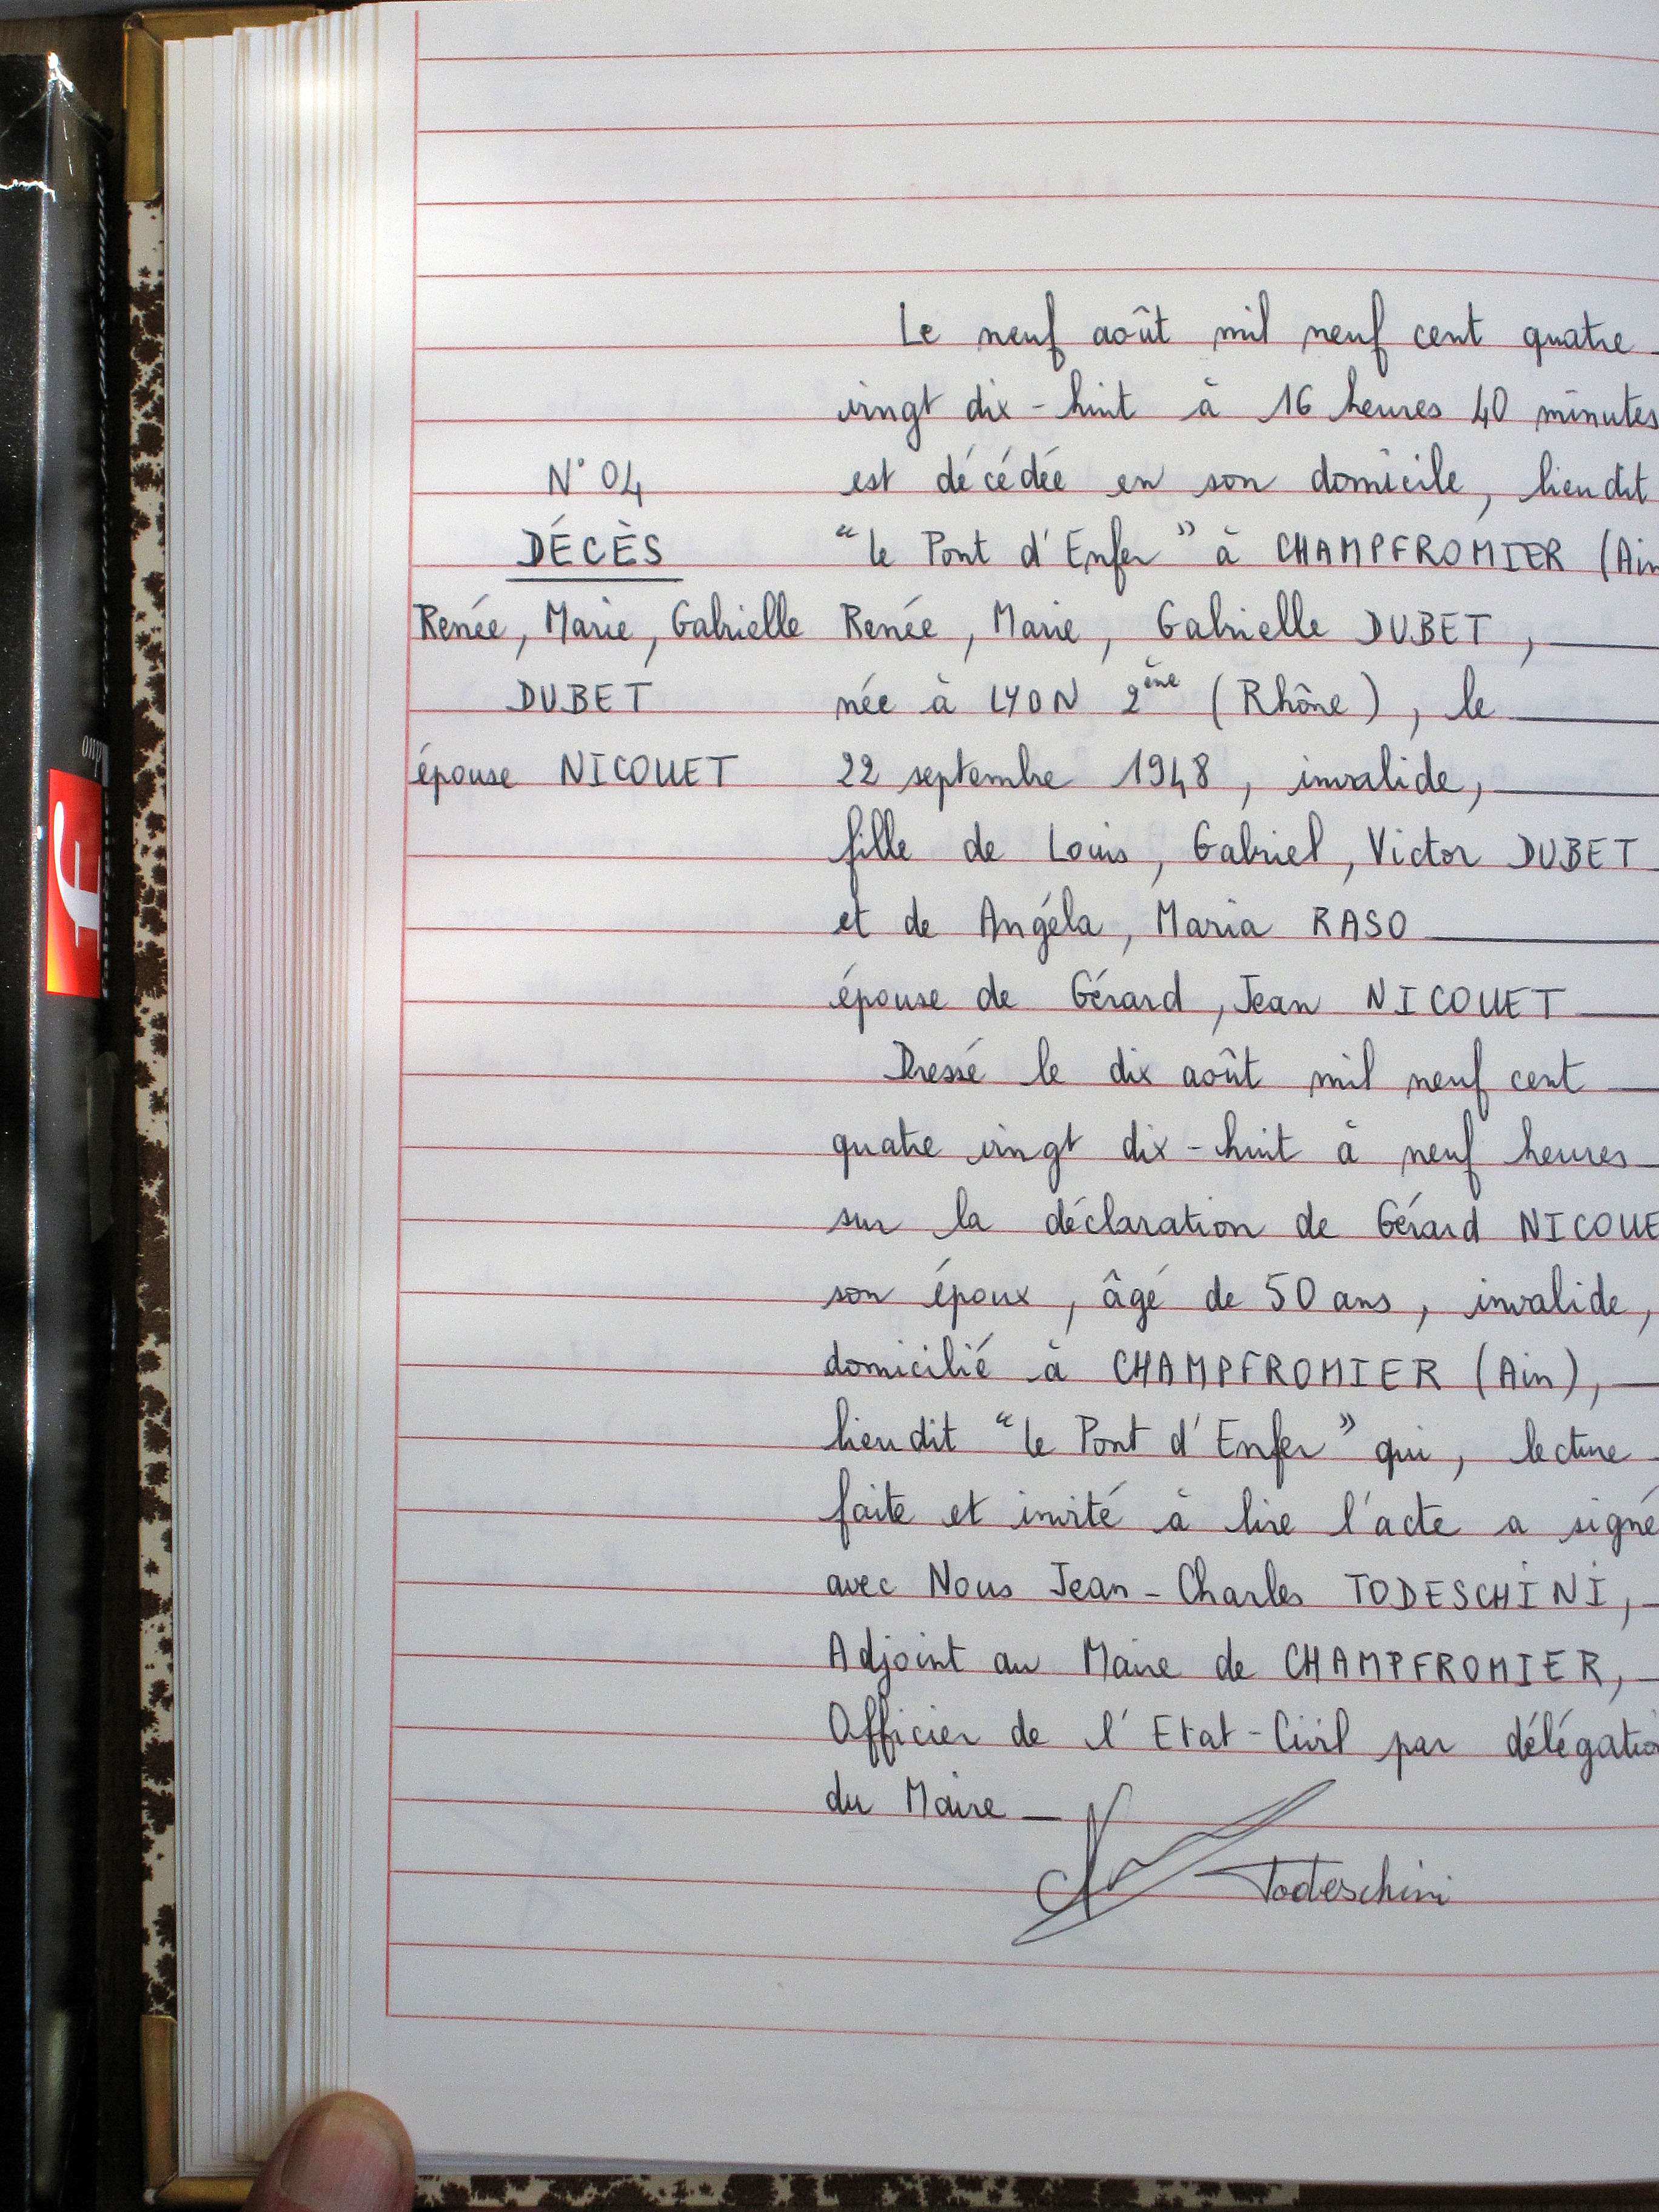 N° 04
DÉCÈS
Renée, Marie, Gabrielle
DUBET
épouse NICOUET
Le neuf août mil neuf cent quatre
vingt dix-huit à 16 heures 40 minutes
est décédée en son domicile, lieudit
"le Pont d'Enfer" à CHAMPFROMIER (Ain
Renée, Marie, Gabrielle DUBET,
née à LYON 2ème (Rhône), le
22 septembre 1948, invalide,
fille de Louis, Gabriel, Victor DUBET
et de Angéla, Maria RASO
épouse de Gérard, Jean NICOUET
Dressé le dix août mil neuf cent
quatre vingt dix-huit à neuf heures
sur la déclaration de Gérard NICOUE
son époux, âgé de 50 ans, invalide,
domicilié à CHAMPFROMIER (Ain),
lieudit "le Pont d'Enfer" qui, lecture
faite et invité à lire l'acte a signé
avec Nous Jean-Charles TODESCHINI,
Adjoint au Maire de CHAMPFROMIER,
Officier de l'Etat-Civil par délégatio
du Maire
Todeschini